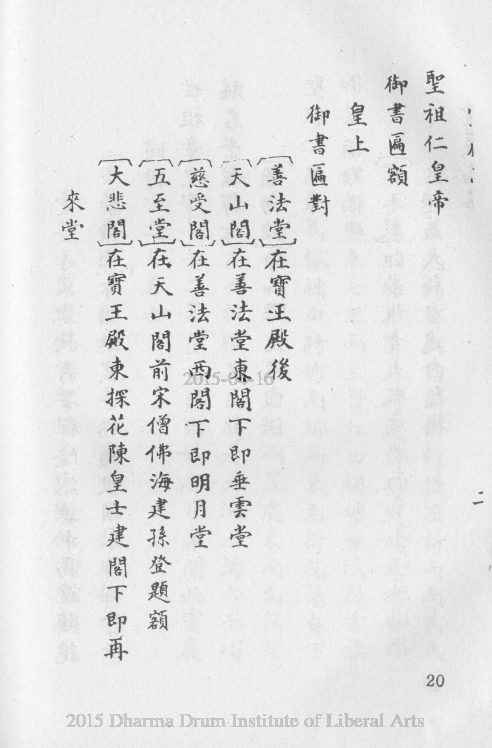 聖祖仁皇帝
御書匾額
皇上
御書匾對
善法堂 在寶王殿後
天山閣 在善法堂東閣下即垂雲堂
慈受閣 在善法堂西閣下即明月堂
五至堂 在天山閣前宋僧佛海建孫登題額
大悲閣 在寶王殿東探花陳皇士建閣下即再
來堂
二
20
2015 Dharma Drum Institute of Liberal Arts